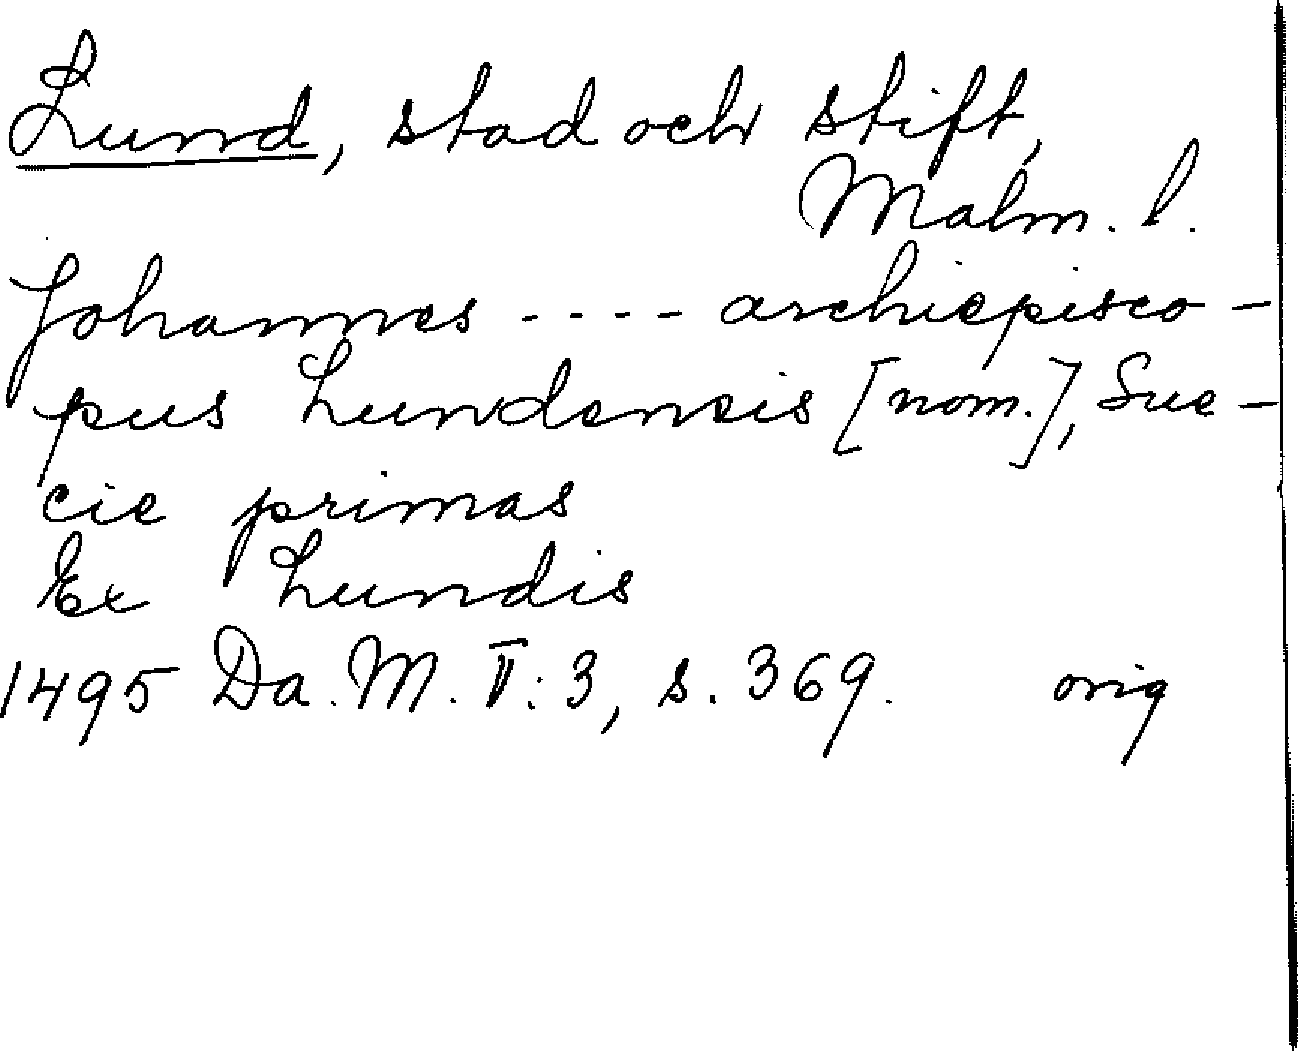 Lund, stad och stift,
Malm. l.
Johannes ---- archiepisco-
pus Lundensis [nom.], Sue-
cie primas
Ex Lundis
1495 Da. M. V: 3, s. 369. orig